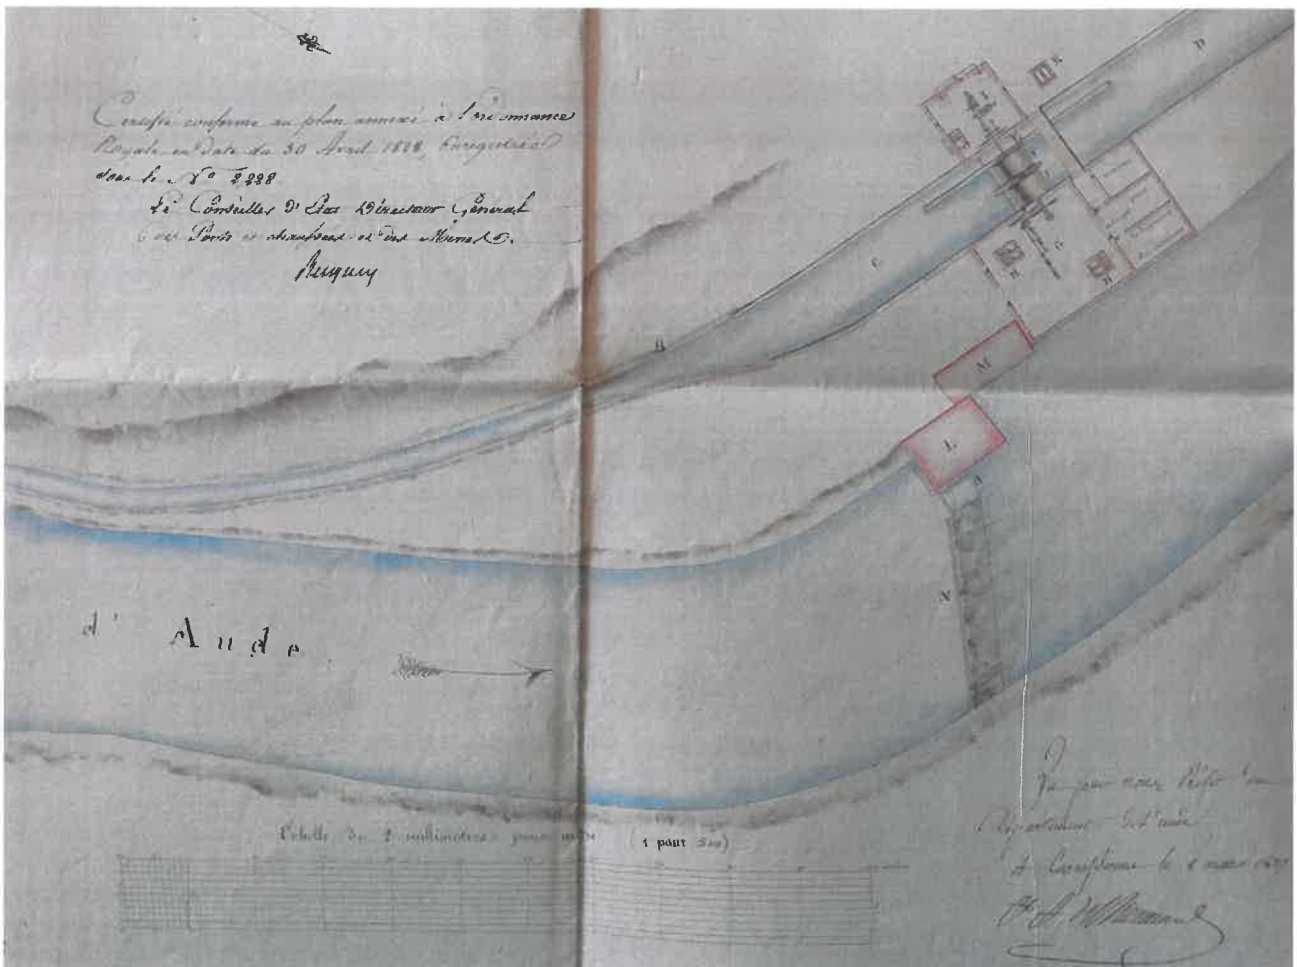 Certifié conforme au plan annexé à l'ordonnance
Royale en date du 30 Avril 1828, Enregistré
sous le N° 2228
Le Conseiller d'Etat Directeur Général
des Ponts et chaussées et des Mines.
Becquey
D
C
G
B
M
L
N
d' Aude
Echelle de 2 millimètres pour mètre (1 pour 500)
Vu par nous Préfet du
Département de l'aude
A Carcassonne le mars